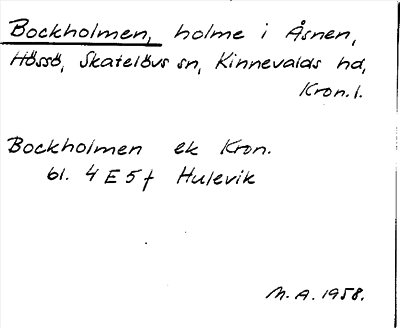 Bockholmen, holme i Åsnen,
Hössö, Skatelövs sn, Kinnevalds hd,
Kron. l.
Bockholmen ek Kron.
bl. 4 E 5 f Hulevik
M. A. 1958.